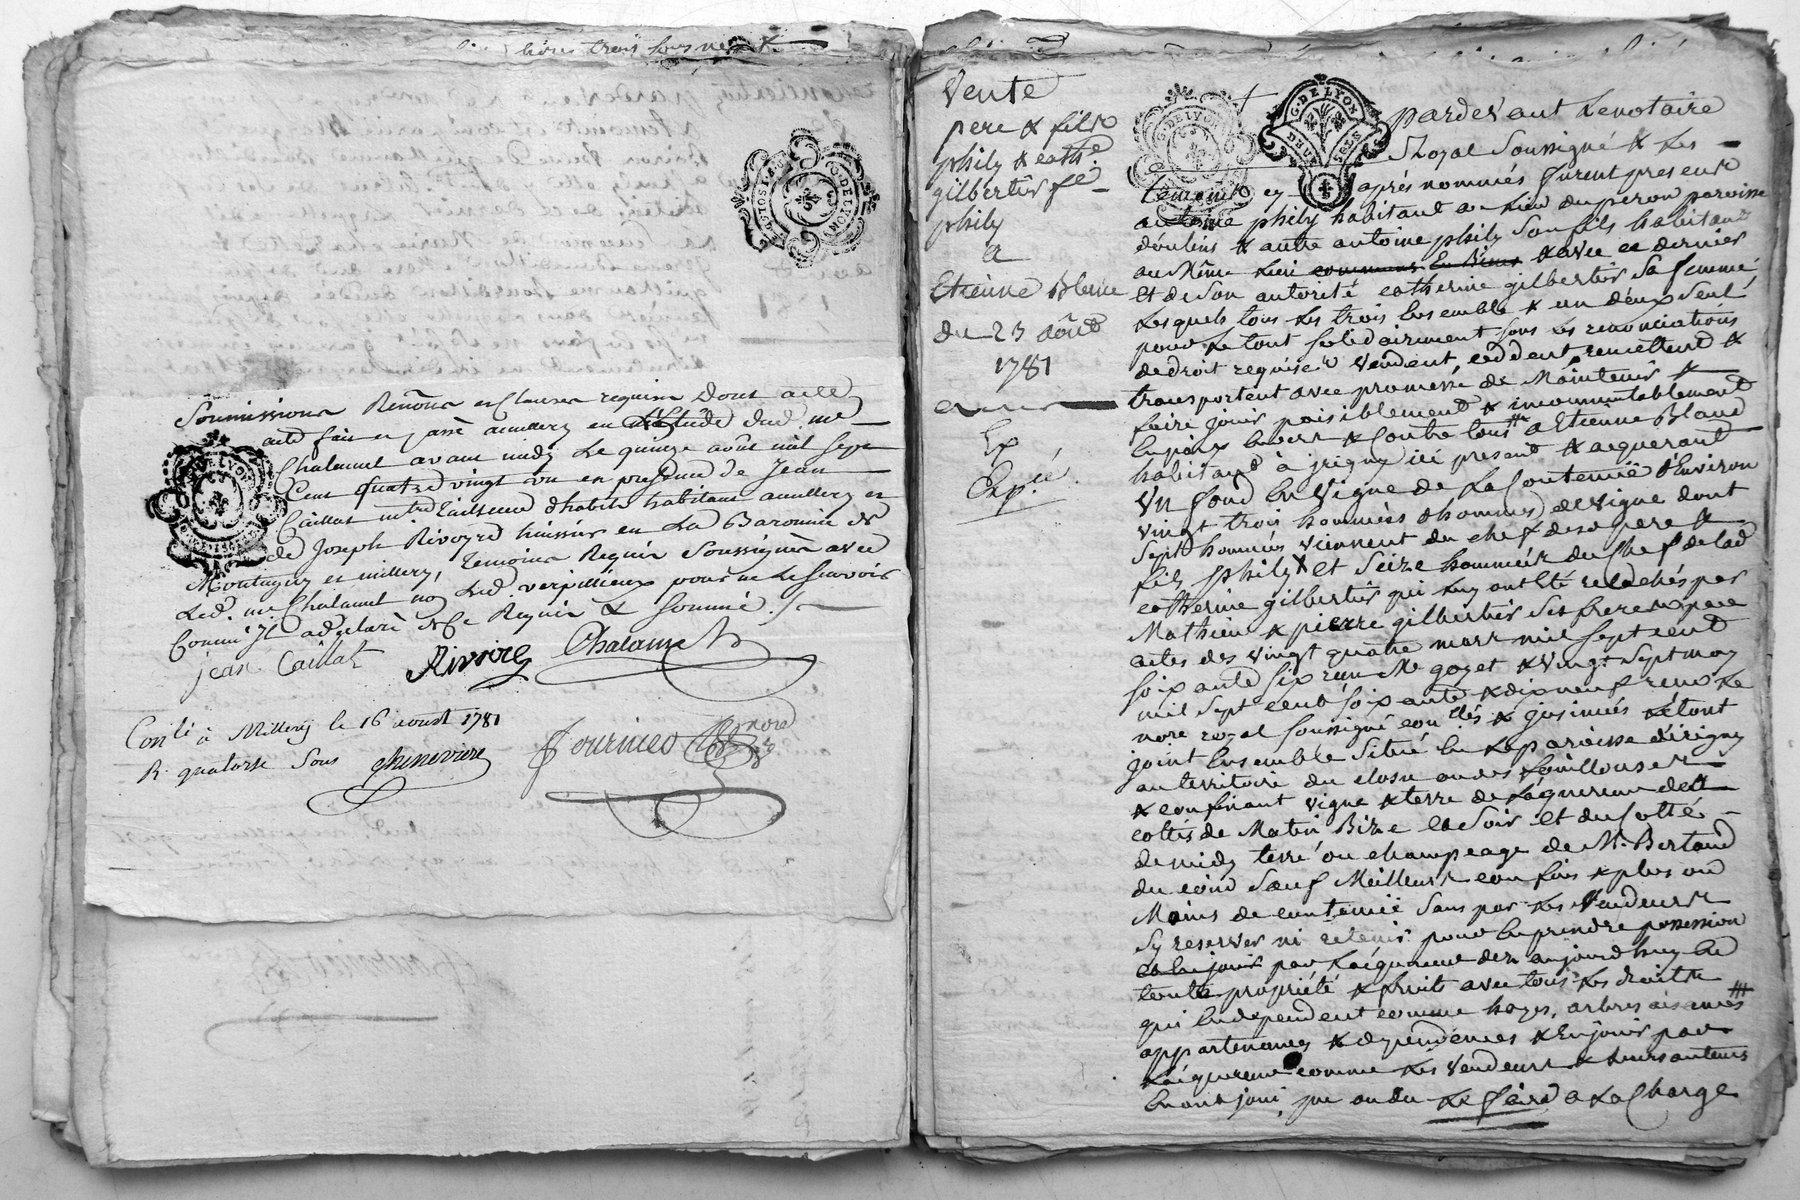 livres trois sous
Soumissions Renōns et Clauses requises Dont acte
fait et passé a millery en L'Etude dud. me
Chalamel avant midy Le quinze août mil sept
Cent quatre vingt un en presence de Jean
Caillat mtre Tailleur d'habits habitant a millery et
de Joseph Rivoyre huissier en La Baronnie de
Montagny et millery, Temoins Requis Soussignés avec
Led. me Chalamel non Led. verpillieux pour ne le sçavoir
Comme Il a declaré de ce Requis & Sommé ./.
jean Caillat
Rivoire
Chalamel
Conlé à Millery le 16 aoust 1781
R. quatorze Sous
chenevière
fournico
G. DE LYON
Vente
pere & fils
phily & cathe.
gilbertus fe
phily
a
Etienne Blanc
du 23 aôut
1781
Ex
Expée.
G. DE LYON
G. DE LYON
DEUX SOLS
pardevant Le notaire
Royal Soussigné & Les
temoins cy après nommés furent present
antoine phily habitant au Lieu du peron paroisse
doulins & autre antoine phily Son fils habitant
au Même Lieu & avec ce dernier
et de Son autorité catherine gilbertus Sa femme
Lesquels tous Les trois Ensemble & un deux Seul
pour Le tout Solidairement Sous Les renonciations
de droit requises vendent, ceddent, remettent &
transportent avec promesse de Maintenir &
faire jouir paisiblement & incommutablement
En paix Envers & Contre tous a Etienne Blanc
habitant à jrigny ici present & acquerant
Un fond En Vigne de La Contenüe d'Environ
Vingt trois hommées de Vigne dont
Sept hommées viennent du chef desd pere &
fils Phily et Seize hommées du Chef de lad
catherine gilbertus qui Luy ont Eté relachés par
Mathieu & pierre gilbertus Ses freres par
actes des vingt quatre mars mil Sept cent
Soixante Six reçu Me goyet & vingt Sept may
mil Sept cent Soixante & dix neuf recu Le
nore royal Soussigné conllés & jnsinués Letout
joint Ensemble Situé En La paroisse d'irigny
au territoire du closu ou des fouillouses
& confinant vigne & terre de L'acquereur des
cottés de Matin Bize et Soir et du Cotté
de midy terre ou champeage de Mr Bertaud
du coin Sauf Meilleurs confins & plus ou
Moins de contenüe Sans par Les Vendeurs
Sy reserver ni retenir pour En prendre possession
et En jouir par L'acquereur des aujourd'huy En
toute propriété & fruits avec tous Les droits
qui En dependent comme hayes, arbres aisances
appartenances & dependences & En jouir par
L'acquereur comme Les Vendeurs & Leurs auteurs
En ont joui, pu ou du Le faire a La Charge